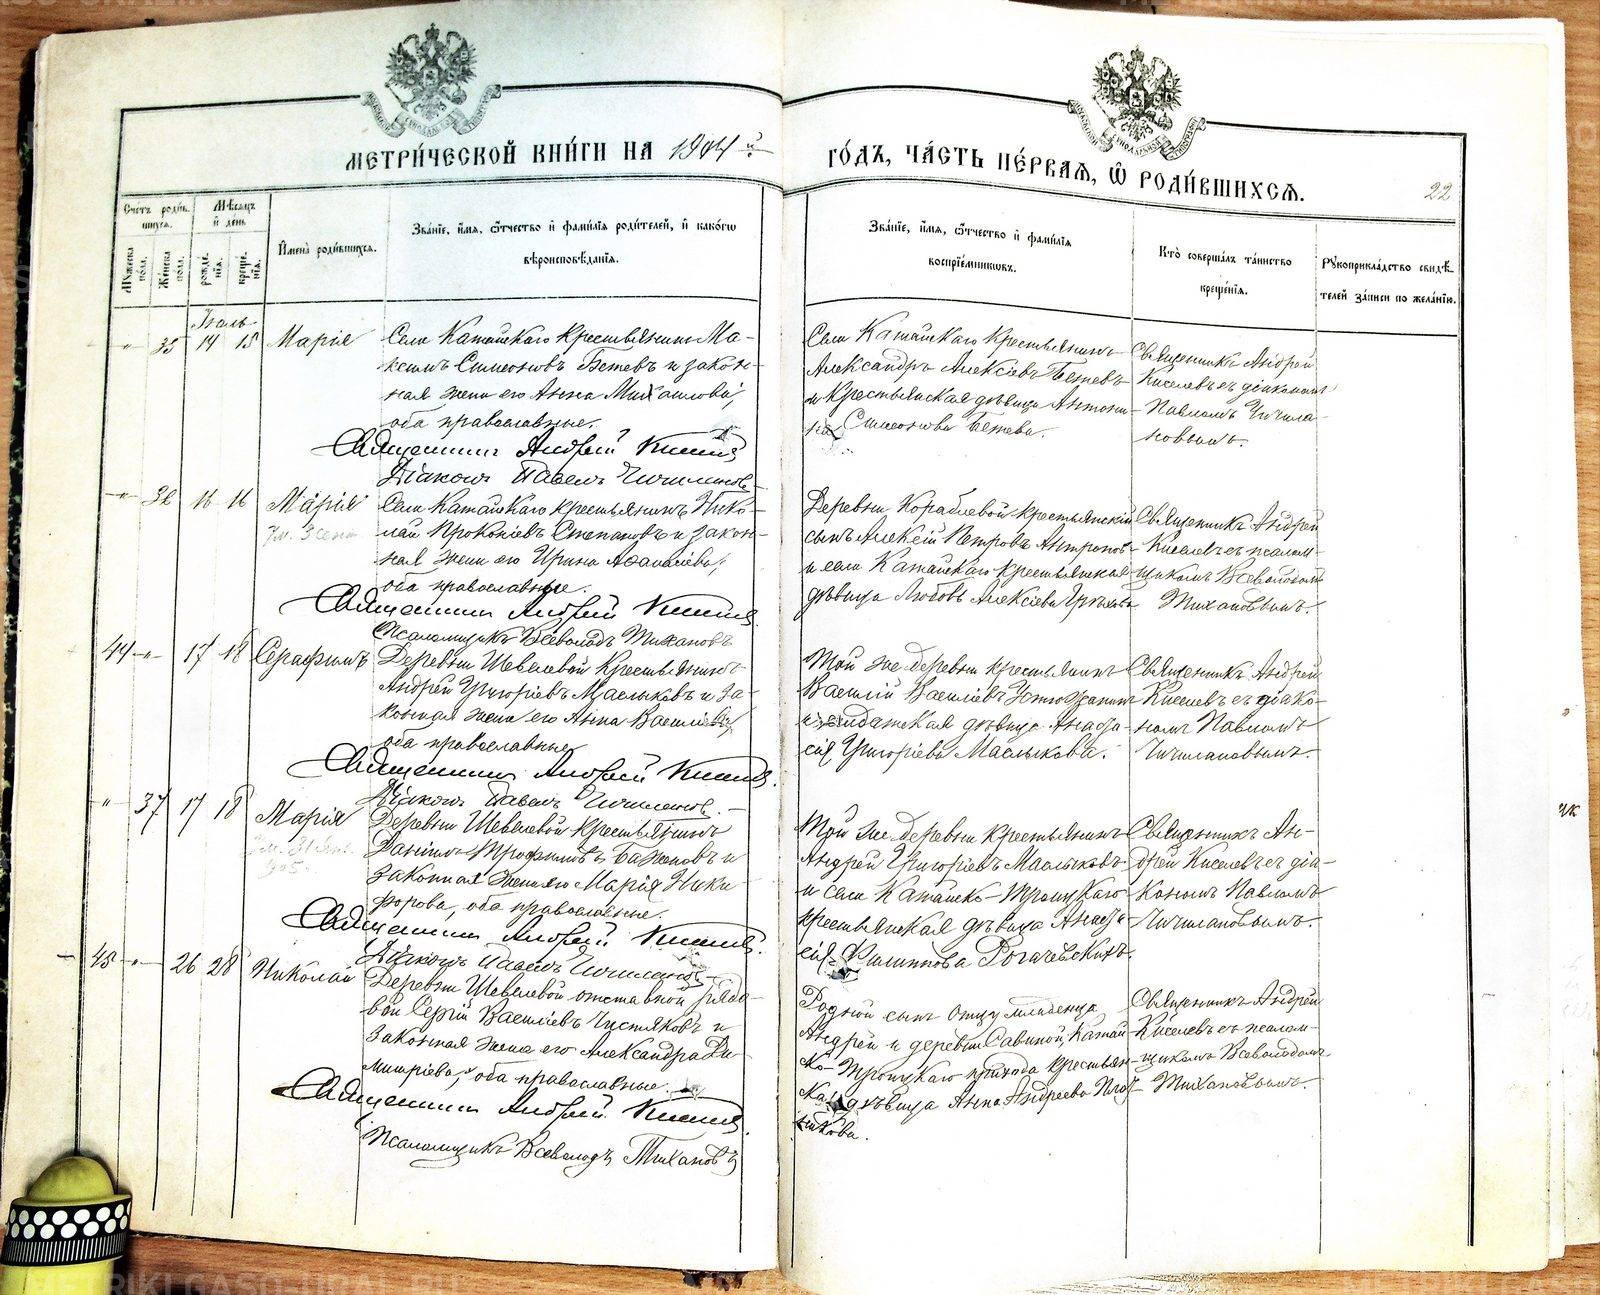 МЕТРИ́ЧЕСКОЙ КНИ́ГИ НА 1904 й
ГО́ДЪ, ЧА́СТЬ ПЕ́РВАѦ, Ѿ РОДИ́ВШИХСѦ.
22
Счётъ роди́в
шихсѧ.
Мѣ́сѧцъ
и҆ де́нь
Му́жеска по́ла.
Же́нска по́ла.
рожде́нїѧ.
креще́нїѧ.
И҆мена̀ роди́вшихсѧ.
Зва́нїе, и҆́мѧ, ѻ҆́тчество и҆ фами́лїѧ роди́телей, и҆ како́гѡ
вѣроисповѣ́данїѧ.
Зва́нїе, и҆́мѧ, ѻ҆́тчество и҆ фами́лїѧ
воспрїе́мникѡвъ.
Кто̀ соверша́лъ та́инство
креще́нїѧ.
Рꙋкоприкла́дство свидѣ́
телей за́писи по жела́нїю.
Іюль
" 35 14 15 Марія
Села Катайскаго крестьянинъ Ма-
ксимъ Симеоновъ Бетевъ и закон-
ная жена его Анна Михаилова,
оба православные.
Священникъ Андрей Киселевъ
Діаконъ Павелъ Чичилановъ
Села Катайскаго крестьянинъ
Александръ Алексіевъ Бетевъ
и крестьянская дѣвица Антони-
на Симеонова Бетева.
Священникъ Андрей
Киселевъ съ діакономъ
Павломъ Чичила-
новымъ.
" 36 16 16 Марія
Села Катайскаго крестьянинъ Нико-
лай Прокопіевъ Степановъ и закон-
ная жена его Ирина Афанасіева,
оба православные.
Священникъ Андрей Киселевъ
Псаломщикъ Всеволодъ Тихановъ
Деревни Кораблевой крестьянскій
сынъ Алексій Петровъ Антропов
и села Катайскаго крестьянская
дѣвица Любовь Алексіева
Священникъ Андрей
Киселевъ съ псалом-
щикомъ Всеволодомъ
Тихановымъ.
44 " 17 18 Серафимъ
Деревни Шевелевой крестьянинъ
Андрей Григоріевъ Маслыковъ и за-
конная жена его Анна Василіева,
оба православные
Священникъ Андрей Киселевъ
Діаконъ Павелъ Чичилановъ
Той же деревни крестьянинъ
Василій Василіевъ Устюжанинъ
и солдатская дѣвица Анаста-
сія Григоріева Маслыкова.
Священникъ Андрей
Киселевъ съ діако-
номъ Павломъ
Чичилановымъ.
" 37 17 18 Марія
Деревни Шевелевой крестьянинъ
Даніилъ Трофимовъ Баженовъ и
законная жена его Марія Ники-
форова, оба православные.
Священникъ Андрей Киселевъ
Діаконъ Павелъ Чичилановъ
Той же деревни крестьянинъ
Андрей Григоріевъ Маслыковъ
и села Катайско-Троицкаго
крестьянская дѣвица Анаста-
сія Филиппова Рогачевскихъ.
Священникъ Ан-
дрей Киселевъ съ діа-
кономъ Павломъ
Чичилановымъ.
45 " 26 28 Николай
Деревни Шевелевой отставной рядо-
вой Сергій Василіевъ Чистяковъ и
законная жена его Александра Ди-
митріева, оба православные.
Священникъ Андрей Киселевъ
Псаломщикъ Всеволодъ Тихановъ
Родной сынъ отцу младенца
Андрей и деревни Савиной, Катай-
ко-Троицкаго прихода крестьян-
ская дѣвица Анна Андреева Плот-
никова.
Священникъ Андрей
Киселевъ съ псалом-
щикомъ Всеволодомъ
Тихановымъ.
METRIKI.GASO-URAL.RU